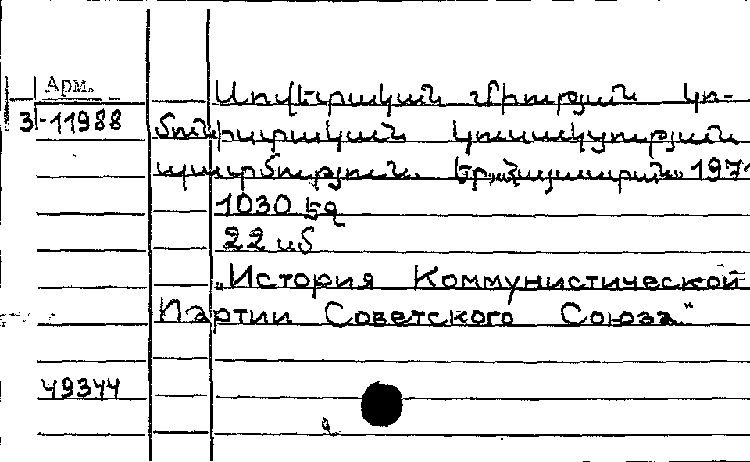 Арм.
Սովետական միության կո-
3-11988
մունիստական կուսակցության
պատմություն. Եր., „Հայաստան“ 1971
1030 էջ
22 սմ
„История Коммунистической
Партии Советского Союза“
49344